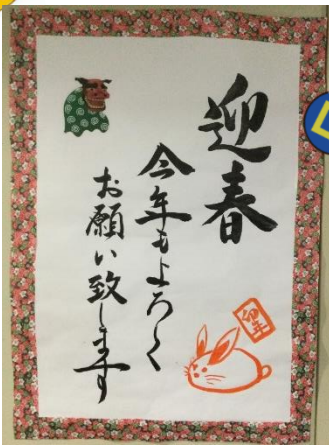 迎春
今年もよろしく
お願い致します
卯年